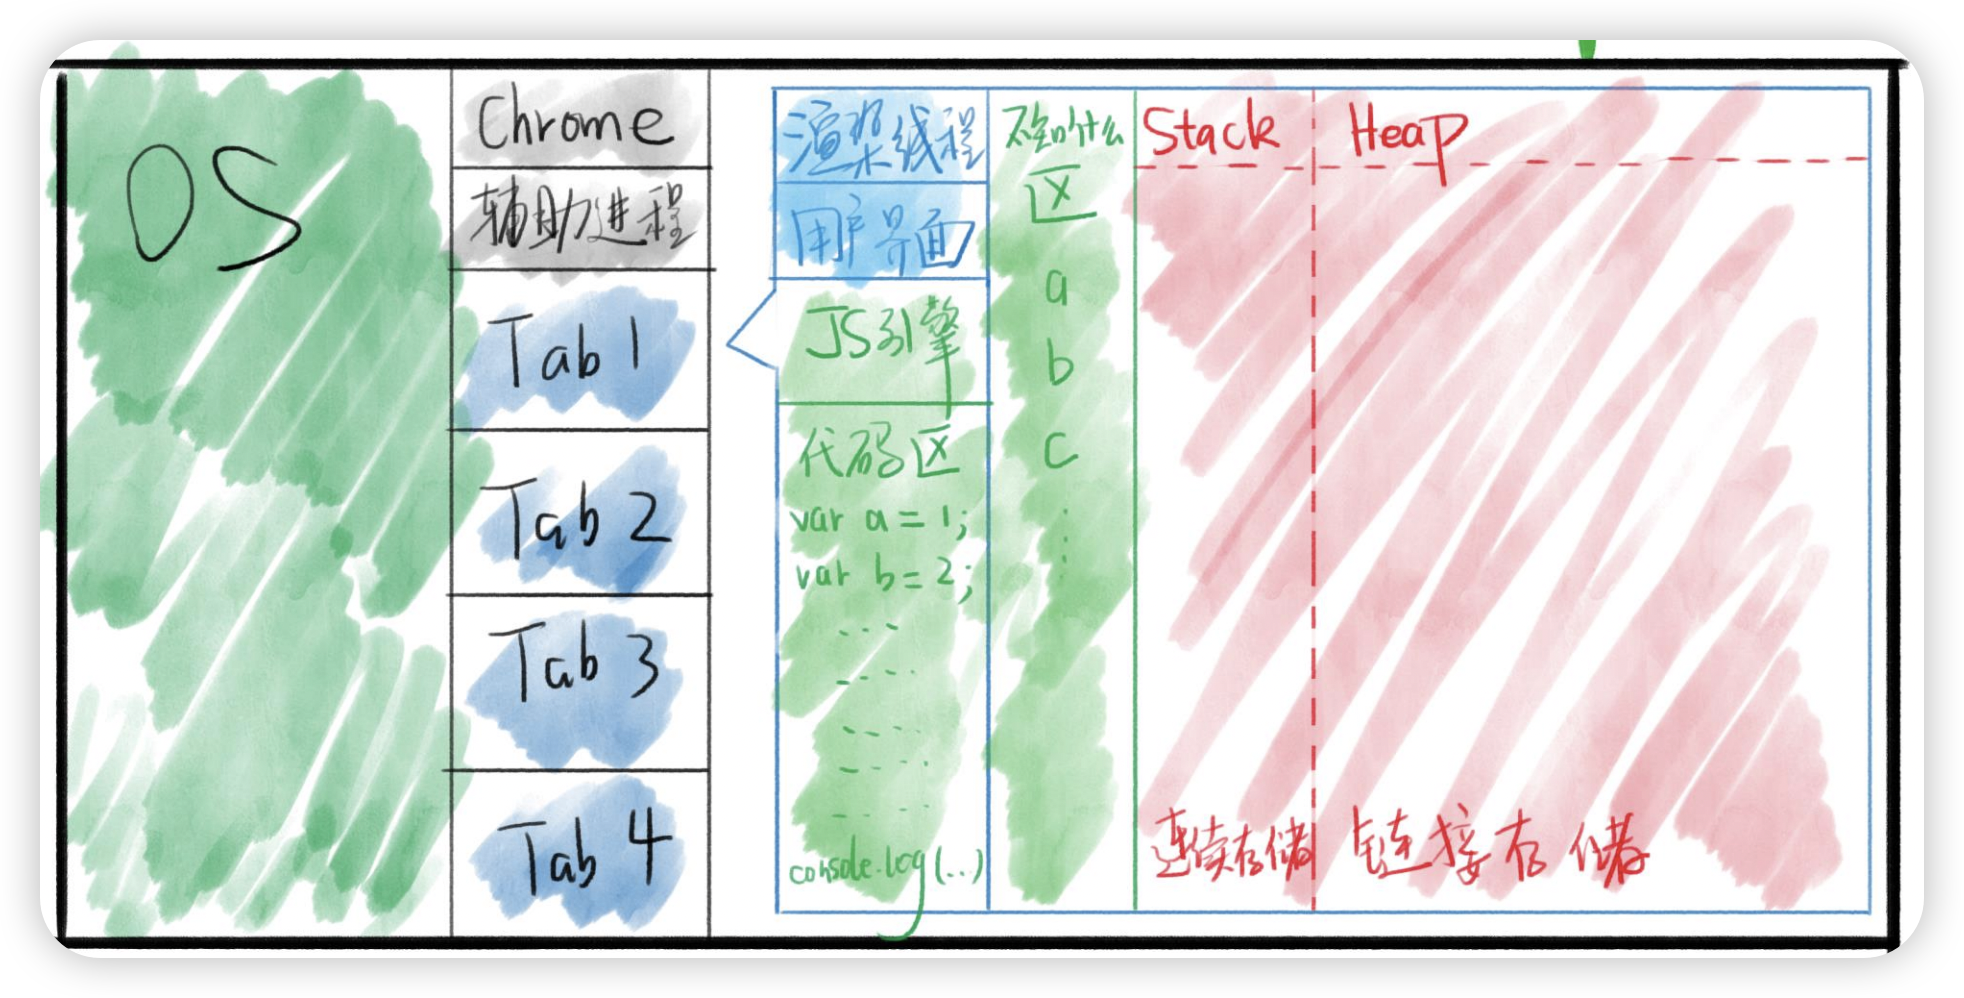 OS
Chrome
辅助进程
Tab 1
Tab 2
Tab 3
Tab 4
渲染线程
用户界面
JS引擎
代码区
var a = 1;
var b = 2;
....
....
....
....
....
console.log(...)
不知叫什么
区
a
b
c
Stack
连续存储
Heap
链接存储